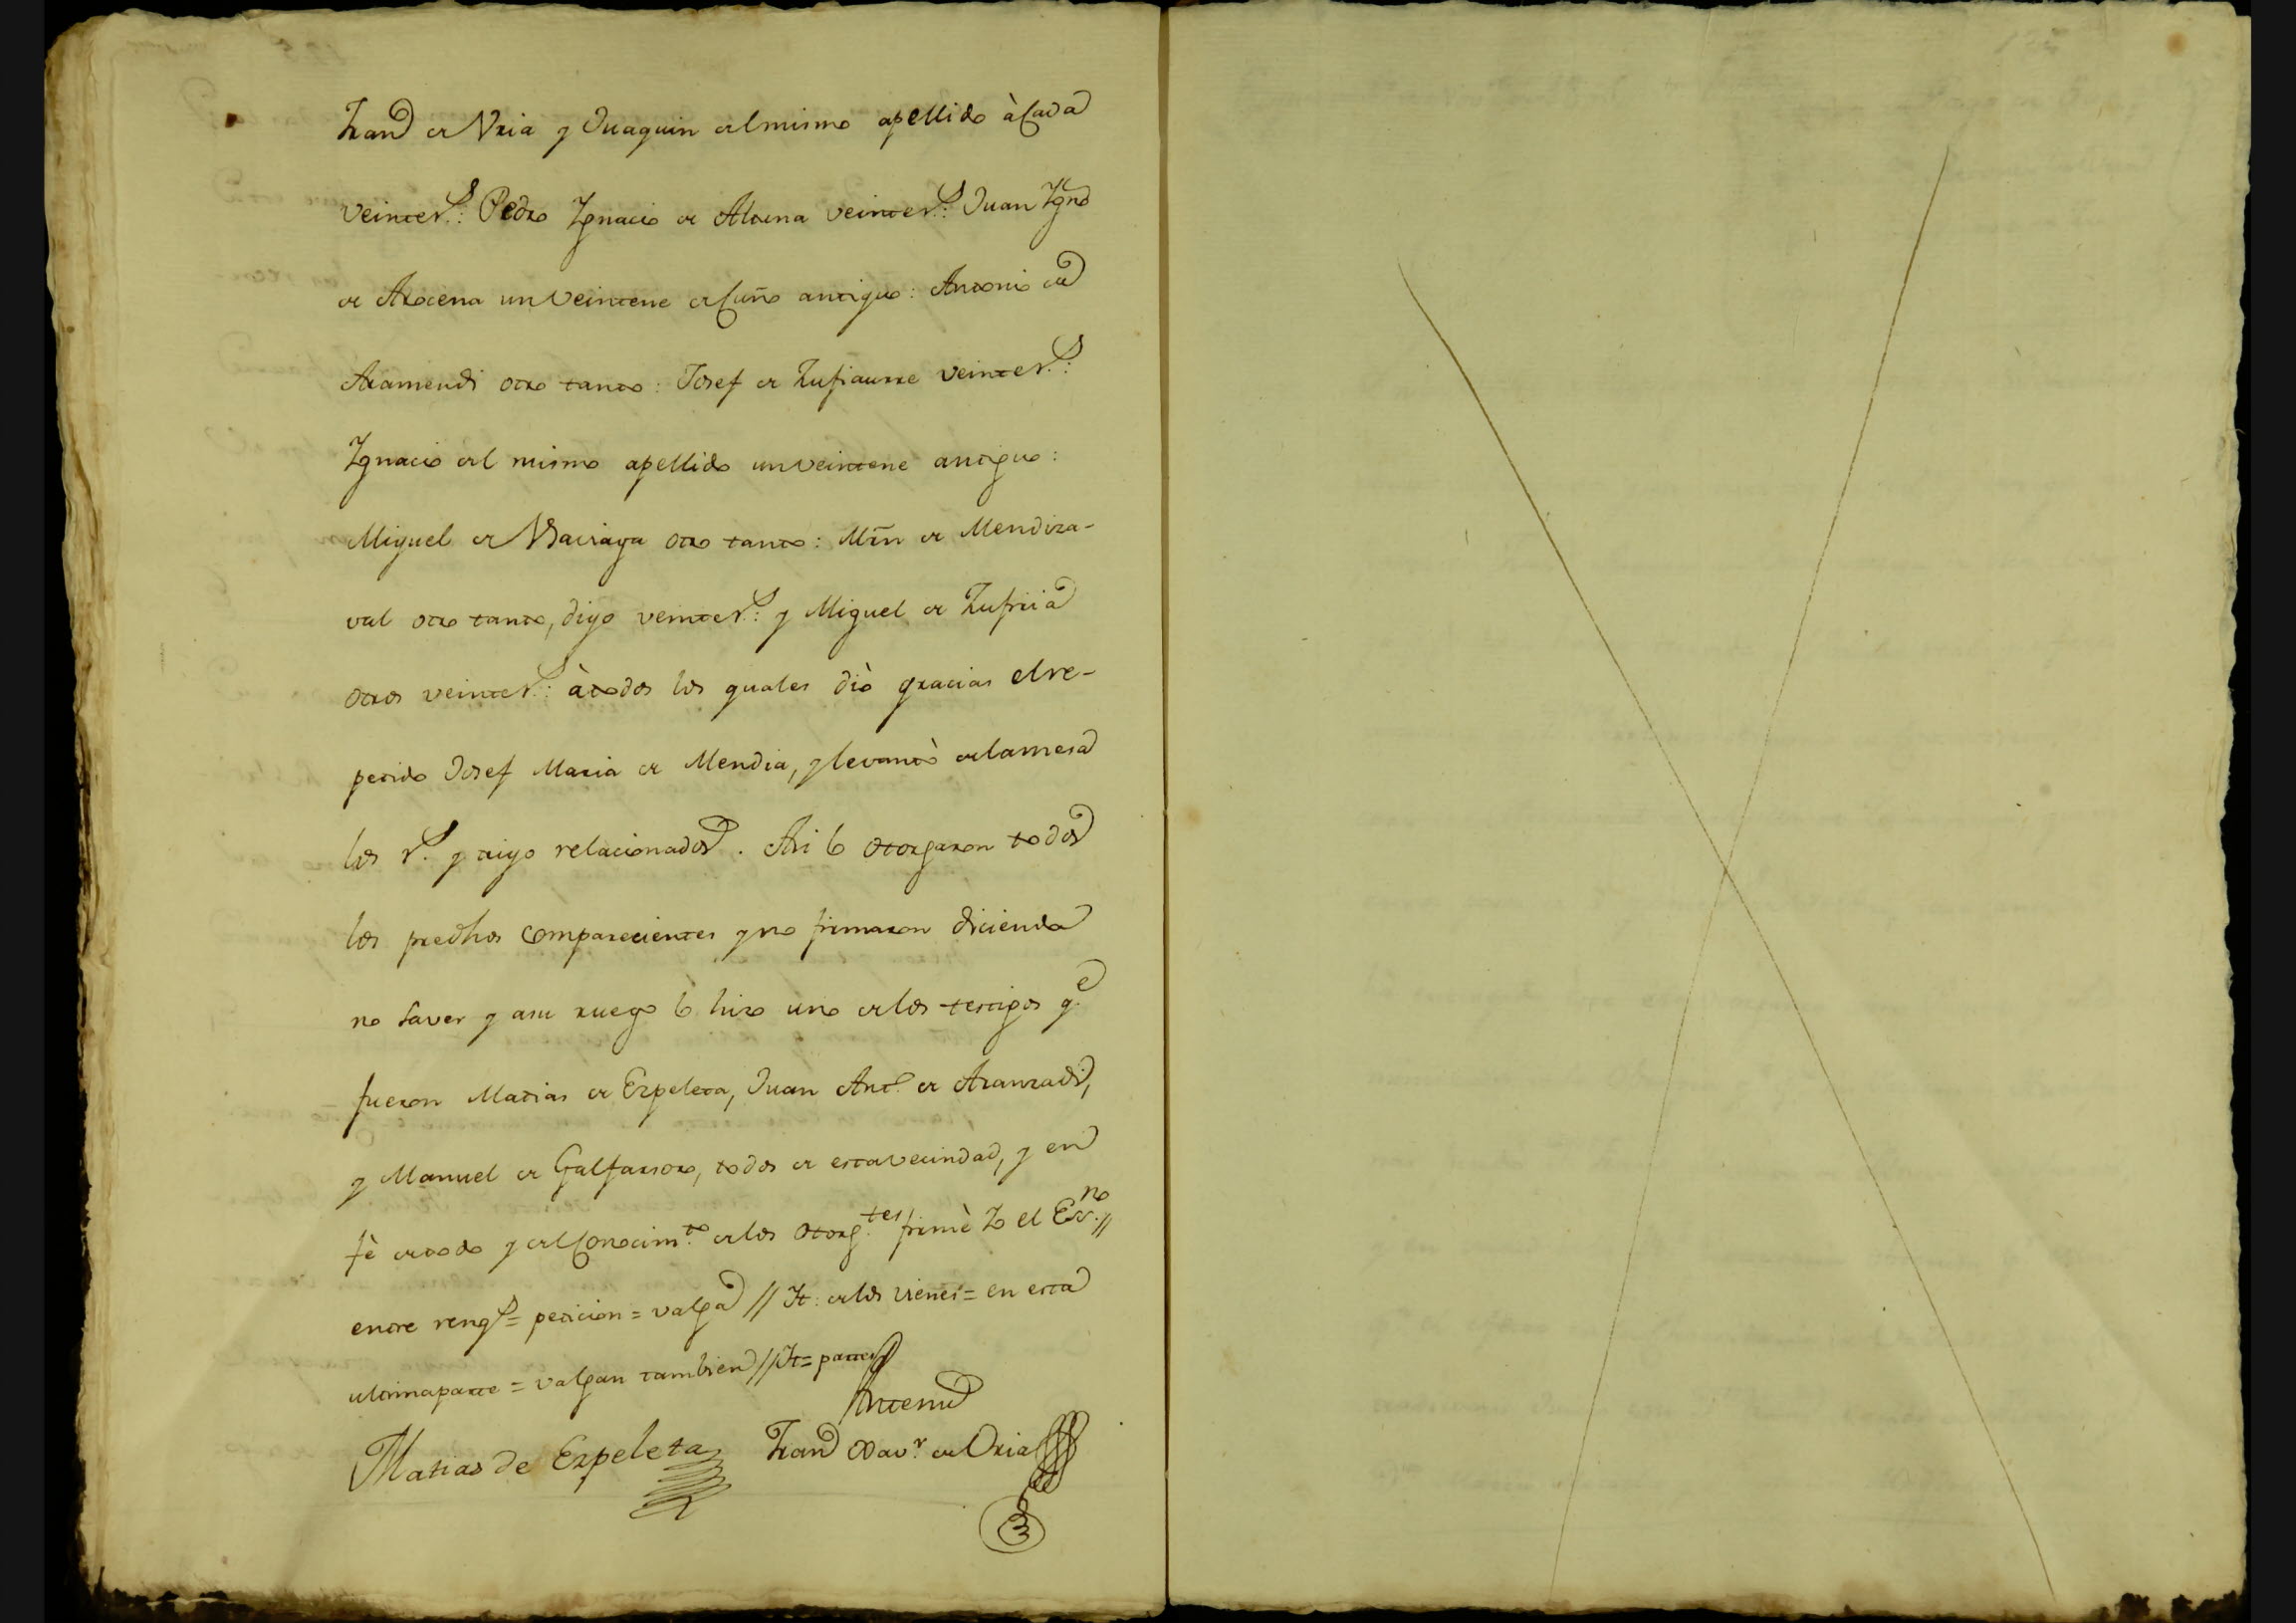 Fran.co de Vria y Juaquin del mismo apellido à Cada
veinte r.s: Pedro Ygnacio de Altuna veinte r.s: Juan Ygn.o
de Arocena un Veintene de Cuño antiguo: Antonio de
Aramendi otro tanto: Josef de Zufiaurre veinte r.s:
Ygnacio del mismo apellido un veintene antiguo:
Miguel de otro tanto: Mrñ de Mendiza-
val otro tanto, digo veinte r.s: y Miguel de Zufiria
otros veinte r.s: à todos los quales diò gracias el re-
petido Josef Maria de Mendia, y levantò de la mesa
los r.s y trigo relacionados. Asi lo otorgaron todos
los predhos comparecientes y no firmaron diciendo
no saver y a su ruego lo hizo uno de los testigos q.e
fueron Matias de Ezpeleta, Juan Ant.o de Aranzadi,
y Manuel de Galfarsoro, todos de esta vecindad, y en
fè de todo y del Conocim.to de los otorg.tes firmè Yo el Ess.no //
entre reng.s = peticion = valga // Yt: de los vienes = en esta
ultima parte = valgan tambien // Yt = partes
Antemi
Matias de Ezpeleta Fran.co Xav.r de Oria